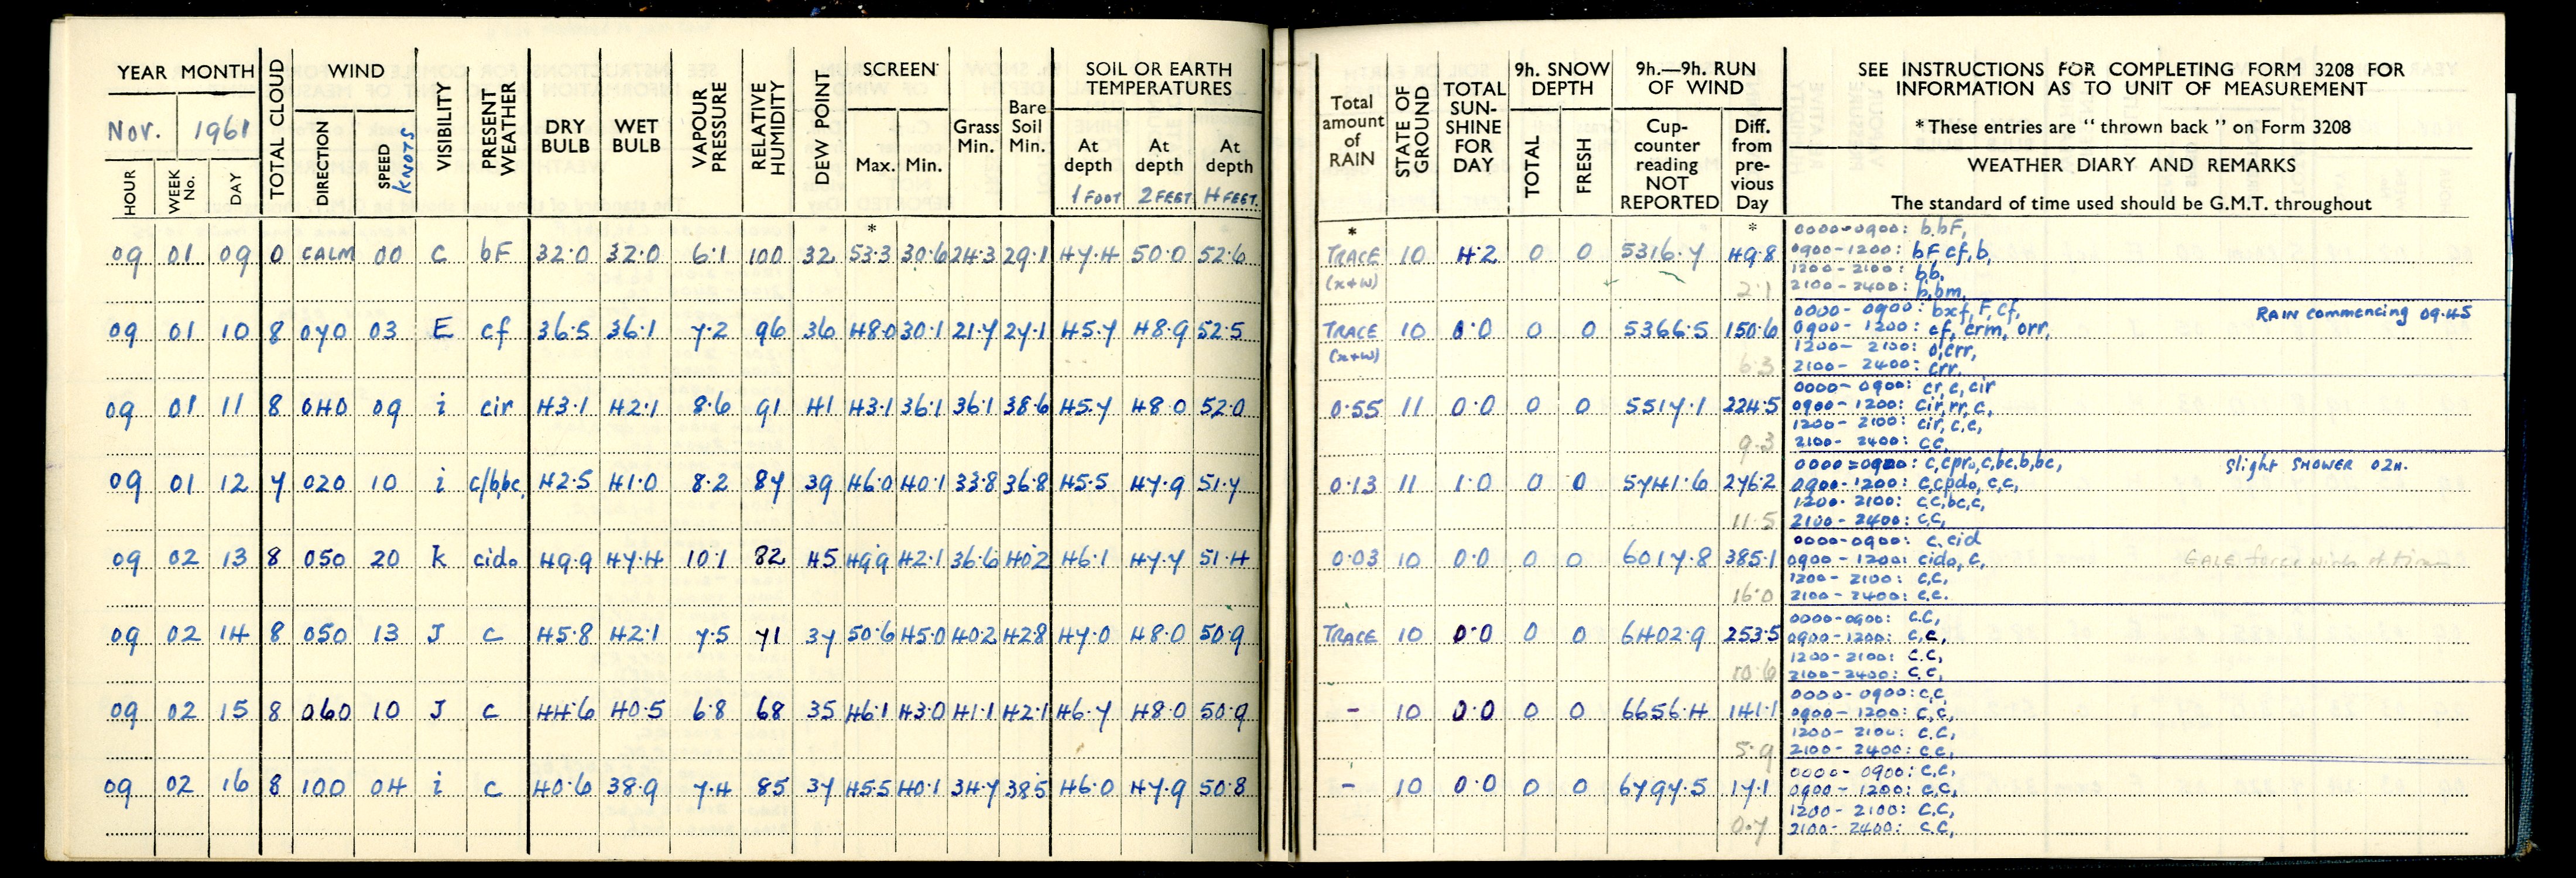 YEAR MONTH
Nov. 1961
HOUR WEEK No. DAY TOTAL CLOUD
WIND
DIRECTION SPEED KNOTS
VISIBILITY PRESENT WEATHER
DRY BULB WET BULB
VAPOUR PRESSURE RELATIVE HUMIDITY DEW POINT
SCREEN
Max. Min.
Grass Min. Bare Soil Min.
SOIL OR EARTH TEMPERATURES
At depth At depth At depth
1 FOOT 2 FEET 4 FEET.
Total amount of RAIN
STATE OF GROUND
TOTAL SUN- SHINE FOR DAY
9h. SNOW DEPTH
TOTAL FRESH
9h.—9h. RUN OF WIND
Cup- counter reading NOT REPORTED
Diff. from pre- vious Day
SEE INSTRUCTIONS FOR COMPLETING FORM 3208 FOR
INFORMATION AS TO UNIT OF MEASUREMENT
*These entries are “thrown back” on Form 3208
WEATHER DIARY AND REMARKS
The standard of time used should be G.M.T. throughout
* * *
09 01 09 0 CALM 00 C bF 32.0 32.0 6.1 100 32 53.3 30.6 24.3 29.1 47.4 50.0 52.6 TRACE 10 4.2 0 0 5316.7 49.8
(x+w) 2.1
0000-0900: b,bF,
0900-1200: bF cf,b,
1200-2100: bb,
2100-2400: b,bm,
09 01 10 8 070 03 E cf 36.5 36.1 7.2 96 36 48.0 30.1 21.7 27.1 45.7 48.9 52.5 TRACE 10 0.0 0 0 5366.5 150.6
(x+w) 6.3
0000-0900: bxf, F, Cf, RAIN commencing 09.45
0900-1200: cf, crm, orr,
1200-2100: o,crr,
2100-2400: crr,
09 01 11 8 040 09 i cir 43.1 42.1 8.6 91 41 43.1 36.1 36.1 38.6 45.7 48.0 52.0 0.55 11 0.0 0 0 5517.1 224.5
9.3
0000-0900: cr, c, cir
0900-1200: cir,rr,c,
1200-2100: cir,c,c,
2100-2400: cc,
09 01 12 7 020 10 i c/b,bc, 42.5 41.0 8.2 87 39 46.0 40.1 33.8 36.8 45.5 47.9 51.7 0.13 11 1.0 0 0 5741.6 276.2
11.5
0000-0900: c,cpro,c,bc,b,bc, slight SHOWER 02H.
0900-1200: c,cpdo, c,c,
1200-2100: c,c,bc,c,
2100-2400: c,c,
09 02 13 8 050 20 k cido 49.9 47.4 10.1 82 45 49.9 42.1 36.6 40.2 46.1 47.7 51.4 0.03 10 0.0 0 0 6017.8 385.1
16.0
0000-0900: c, cid
0900-1200: cido, c, GALE force winds at times
1200-2100: c,c,
2100-2400: c.c.
09 02 14 8 050 13 J c 45.8 42.1 7.5 71 37 50.6 45.0 40.2 42.8 47.0 48.0 50.9 TRACE 10 0.0 0 0 6402.9 253.5
10.6
0000-0900: c.c,
0900-1200: c,c,
1200-2100: c.c,
2100-2400: c.c,
09 02 15 8 060 10 J c 44.6 40.5 6.8 68 35 46.1 43.0 41.1 42.1 46.7 48.0 50.9 - 10 0.0 0 0 6656.4 141.1
5.9
0000-0900: c,c
0900-1200: c,c,
1200-2100: c.c,
2100-2400: c.c,
09 02 16 8 100 04 i c 40.6 38.9 7.4 85 37 45.5 40.1 34.7 38.5 46.0 47.9 50.8 - 10 0.0 0 0 6797.5 17.1
0.7
0000-0900: c,c,
0900-1200: c,c,
1200-2100: c.c,
2100-2400: c.c,